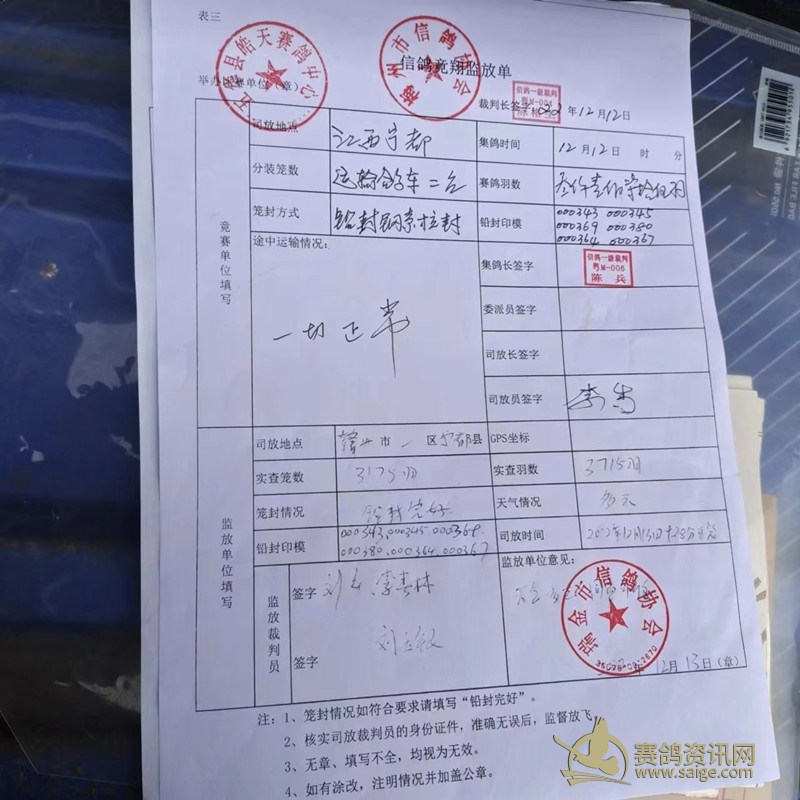 表三
信鸽竟翔监放单
举办比赛单位(章)
五华县皓天赛鸽中心
梅州市信鸽协会
裁判长签字:
信鸽一级裁判
年12月12日
司放地点 江西宁都 集鸽时间 12月12日 时 分
分装笼数 运输鸽车二台 赛鸽羽数
笼封方式 铅封钢索拉封 铅封印模 000343 000345
000369 000380
000364 000367
竞赛单位填写
途中运输情况:
一切正常
集鸽长签字 信鸽一级裁判
粤M-006
陈兵
委派员签字
司放长签字
司放员签字
监放单位填写
司放地点 市 区宁都县 GPS坐标
实查笼数 实查羽数 3715羽
笼封情况 铅封完好 天气情况 多云
铅封印模 000343.000345.000369.
000380.000364.000367
司放时间
监放裁判员
签字
签字
监放单位意见:
瑞金市信鸽协会
12月13日(章)
注:1、笼封情况如符合要求请填写“铅封完好”。
2、核实司放裁判员的身份证件,准确无误后,监督放飞。
3、无章、填写不全,均视为无效。
4、如有涂改,注明情况并加盖公章。
赛鸽资讯网
www.saige.com